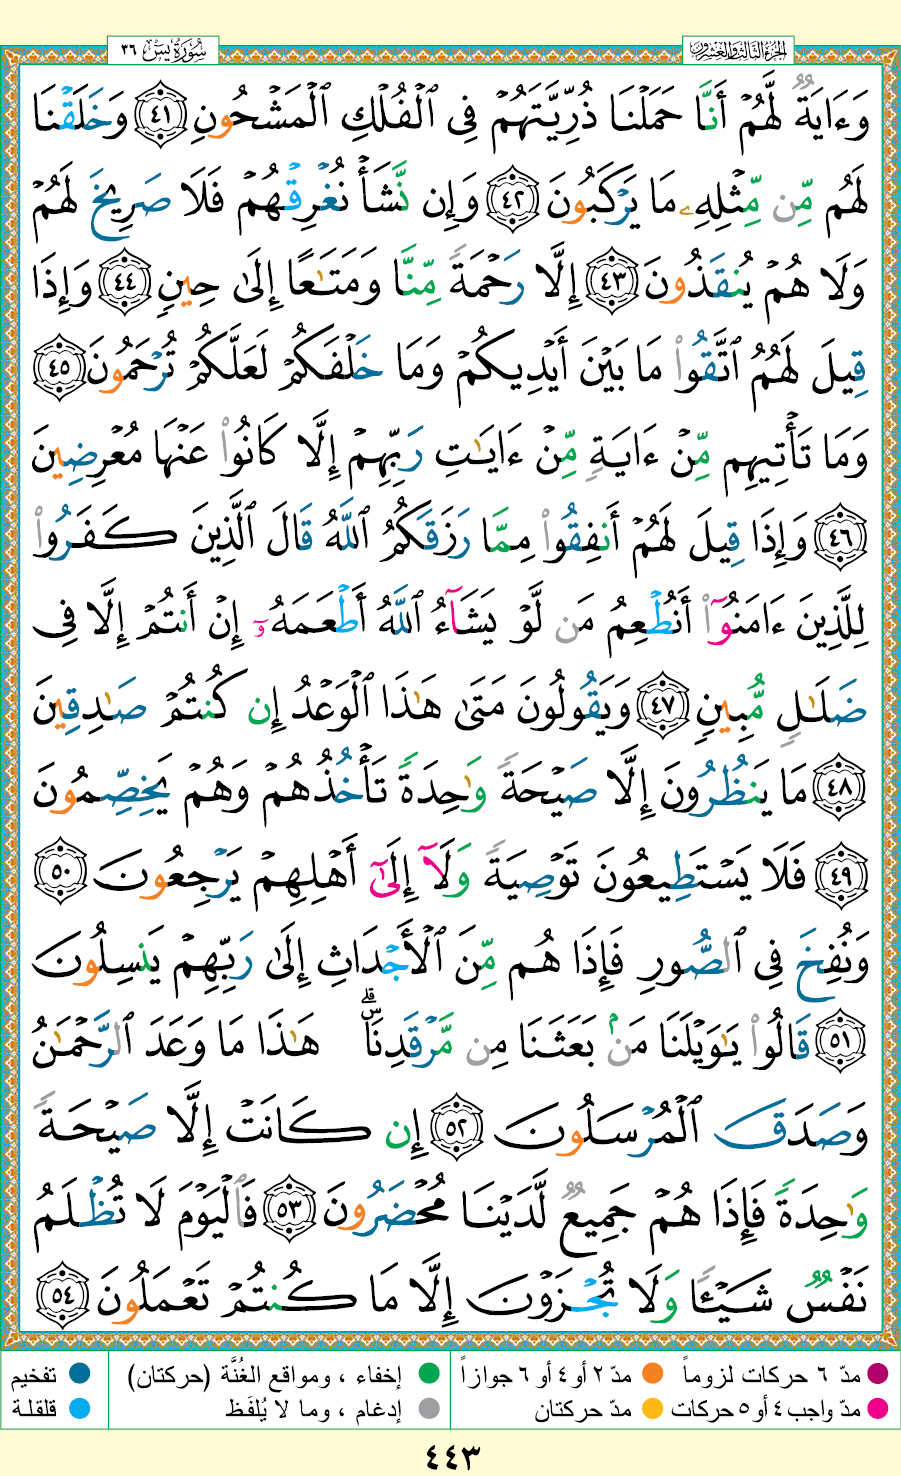 سُورَةُ يسٓ ٣٦
الجُزْءُ الثَّالِثُ وَالعِشْرُونَ
وَءَايَةٌ لَّهُمْ أَنَّا حَمَلْنَا ذُرِّيَّتَهُمْ فِى ٱلْفُلْكِ ٱلْمَشْحُونِ ٤١ وَخَلَقْنَا
لَهُم مِّن مِّثْلِهِۦ مَا يَرْكَبُونَ ٤٢ وَإِن نَّشَأْ نُغْرِقْهُمْ فَلَا صَرِيخَ لَهُمْ
وَلَا هُمْ يُنقَذُونَ ٤٣ إِلَّا رَحْمَةً مِّنَّا وَمَتَـٰعًا إِلَىٰ حِينٍ ٤٤ وَإِذَا
قِيلَ لَهُمُ ٱتَّقُوا۟ مَا بَيْنَ أَيْدِيكُمْ وَمَا خَلْفَكُمْ لَعَلَّكُمْ تُرْحَمُونَ ٤٥
وَمَا تَأْتِيهِم مِّنْ ءَايَةٍ مِّنْ ءَايَـٰتِ رَبِّهِمْ إِلَّا كَانُوا۟ عَنْهَا مُعْرِضِينَ
٤٦ وَإِذَا قِيلَ لَهُمْ أَنفِقُوا۟ مِمَّا رَزَقَكُمُ ٱللَّهُ قَالَ ٱلَّذِينَ كَفَرُوا۟
لِلَّذِينَ ءَامَنُوٓا۟ أَنُطْعِمُ مَن لَّوْ يَشَآءُ ٱللَّهُ أَطْعَمَهُۥٓ إِنْ أَنتُمْ إِلَّا فِى
ضَلَـٰلٍ مُّبِينٍ ٤٧ وَيَقُولُونَ مَتَىٰ هَـٰذَا ٱلْوَعْدُ إِن كُنتُمْ صَـٰدِقِينَ
٤٨ مَا يَنظُرُونَ إِلَّا صَيْحَةً وَٰحِدَةً تَأْخُذُهُمْ وَهُمْ يَخِصِّمُونَ
٤٩ فَلَا يَسْتَطِيعُونَ تَوْصِيَةً وَلَآ إِلَىٰٓ أَهْلِهِمْ يَرْجِعُونَ ٥٠
وَنُفِخَ فِى ٱلصُّورِ فَإِذَا هُم مِّنَ ٱلْأَجْدَاثِ إِلَىٰ رَبِّهِمْ يَنسِلُونَ
٥١ قَالُوا۟ يَـٰوَيْلَنَا مَنۢ بَعَثَنَا مِن مَّرْقَدِنَا ۜ ۗ هَـٰذَا مَا وَعَدَ ٱلرَّحْمَـٰنُ
وَصَدَقَ ٱلْمُرْسَلُونَ ٥٢ إِن كَانَتْ إِلَّا صَيْحَةً
وَٰحِدَةً فَإِذَا هُمْ جَمِيعٌ لَّدَيْنَا مُحْضَرُونَ ٥٣ فَٱلْيَوْمَ لَا تُظْلَمُ
نَفْسٌ شَيْـًٔا وَلَا تُجْزَوْنَ إِلَّا مَا كُنتُمْ تَعْمَلُونَ ٥٤
مدّ ٦ حركات لزوماً مدّ ٢ أو ٤ أو ٦ جوازاً إخفاء ، ومواقع الغُنَّة (حركتان) تفخيم
مدّ واجب ٤ أو ٥ حركات مدّ حركتان إدغام ، وما لا يُلفَظ قلقلة
٤٤٣